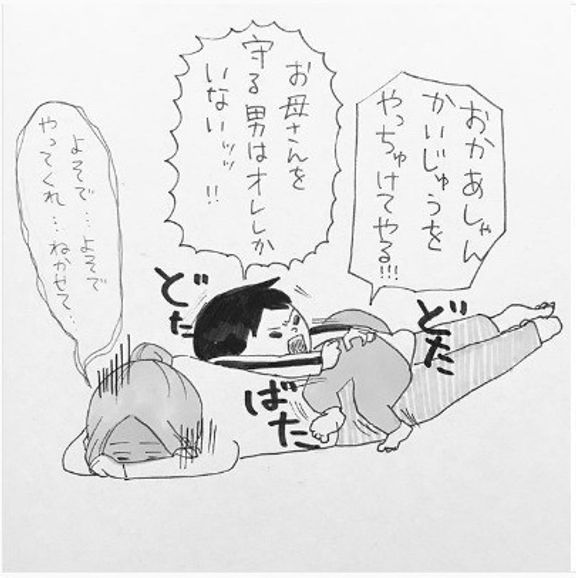 おかあしゃん
かいじゅうを
やっちゅけてやる!!!
お母さんを
守る男はオレしか
いないッッ!!
よそで…よそで
やってくれ…ねかせて…
どた
どた
ばた